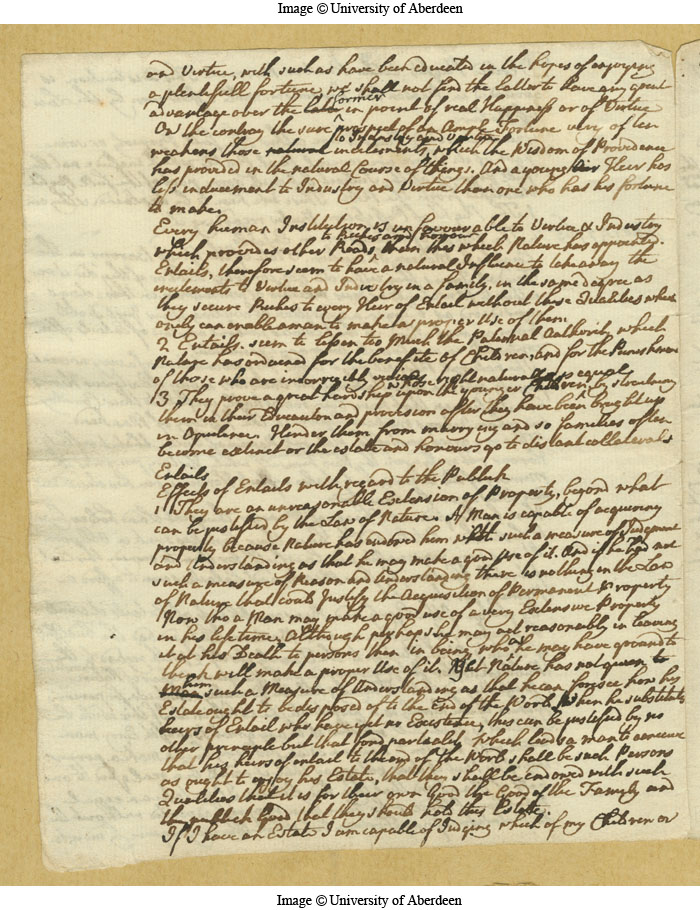 Image © University of Aberdeen
and Virtue, with such as have been educated in the hopes of enjoying
a plentifull fortune, we shall not find the latter to have any great
advantage over the later former in point of real Happiness or of Virtue
On the contrary the sure prospect of an Ample Fortune very often
to Industry and Virtue
weakens those natural incitements, which the Wisdom of Providence
has provided in the natural Course of things. And a young Heir has
less inducement to Industry and Virtue than one who has his fortune
to make.
Every human Institution is unfavourable to Vertue & Industry
to Riches and honour
which provides other Roads, than this which Nature has appointed.
Entails, therefore seem to have a natural Influence to take away the
incitements to Virtue and Industry in a family, in the same degree as
they secure Riches to every Heir of Entail without those Qualities which
onely can enable a man to make a proper Use of them.
2 Entails. seem to lessen too Much the Paternal Authority which
Nature has ordained for the benefite of Children, and for the Punishment
of those who are incorrigibly vicious
whose right naturally is equal
3 They prove a great hardship upon the younger Children, by
them in their Education and provision after they have been brought up
in Opulence. Hinder them from marrying and so families often
become extinct or the estate and honours go to distant collaterals
Entails
Effects of Entails with regard to the Publick
1 They are an unreasonable Extension of Property, beyond what
can be justifed by the Law of Nature. A Man is capable of acquiring
property because Nature has endowed him with such a measure of Judgment
and Understanding as that he may make a good Use of it. And if he had not
such a measure of Reason and Understanding there is nothing in the Law
of Nature that could Justify the Acquisition of Permanent Property
Now tho a Man may make a good use of a very Extensive Property
in his life time, Although perhaps he may act reasonably in leaving
it at his Death to persons then in being who he may have ground to
think will make a proper Use of it. Yet Nature has not given to
Man him such a Measure of Understanding as that he can foresee how his
Estate ought to be disposed of to the End of the World, When he substitutes
heirs of Entail who have yet no Existence, this can be justified by no
other principle but that fond partiality which leads a man to conceive
that his heirs of entail to the end of the World shall be such Persons
as ought to enjoy his Estate, that they shall be endowed with such
Qualities that it is for their own Good the Good of the Family and
the publick Good that they should hold this Estate.
If I have an Estate I am capable of Judging which of my Children or
Image © University of Aberdeen